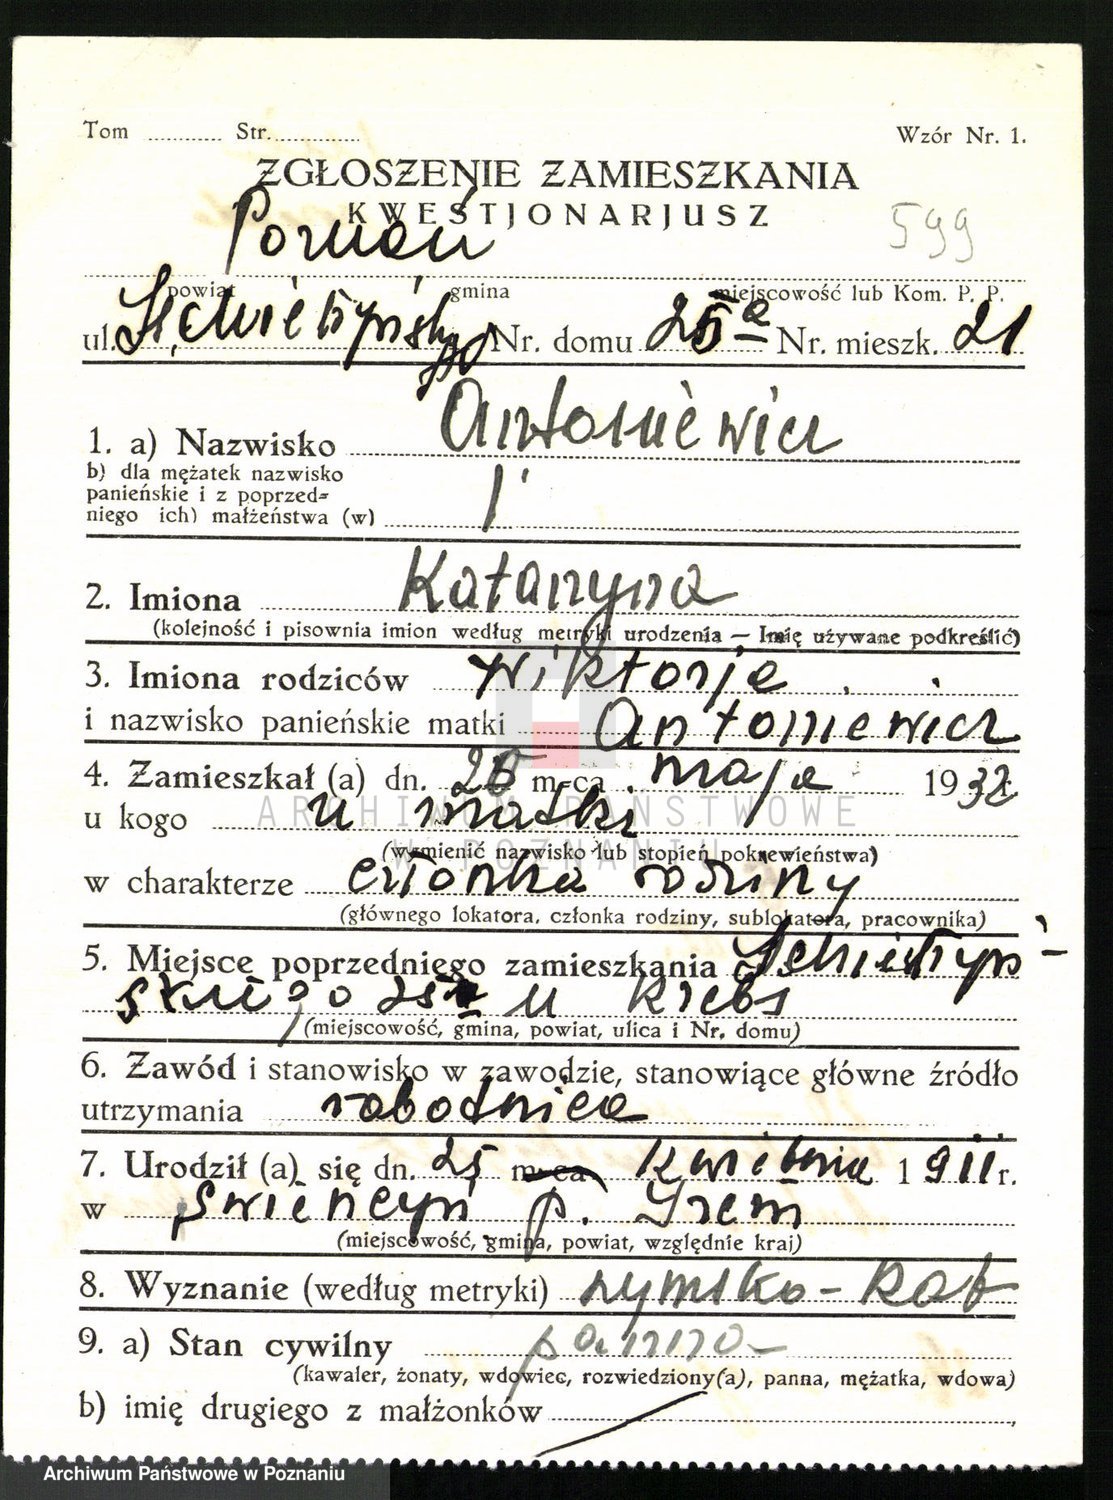 Tom ............ Str. ............ Wzór Nr. 1.
ZGŁOSZENIE ZAMIESZKANIA
KWESTJONARJUSZ 599
Poznań
powiat gmina miejscowość lub Kom. P. P.
ul. Nr. domu 25a Nr. mieszk. 21
1. a) Nazwisko Antoniewicz
b) dla mężatek nazwisko
panieńskie i z poprzed=
niego ich) małżeństwa (w)
2. Imiona Katarzyna
(kolejność i pisownia imion według metryki urodzenia — Imię używane podkreślić)
3. Imiona rodziców Wiktorja
i nazwisko panieńskie matki Antoniewicz
4. Zamieszkał (a) dn. m-ca maja 1932
u kogo u matki
(wymienić nazwisko lub stopień pokrewieństwa)
w charakterze członka rodziny
(głównego lokatora, członka rodziny, sublokatora, pracownika)
5. Miejsce poprzedniego zamieszkania
skiego u Krebs
(miejscowość, gmina, powiat, ulica i Nr. domu)
6. Zawód i stanowisko w zawodzie, stanowiące główne źródło
utrzymania robotnica
7. Urodził (a) się dn. 25 m-ca kwietnia 1911 r.
w p. Śrem
(miejscowość, gmina, powiat, względnie kraj)
8. Wyznanie (według metryki) rzymsko-kat
9. a) Stan cywilny panna
(kawaler, żonaty, wdowiec, rozwiedziony(a), panna, mężatka, wdowa)
b) imię drugiego z małżonków
ARCHIWUM PAŃSTWOWE
W POZNANIU
Archiwum Państwowe w Poznaniu